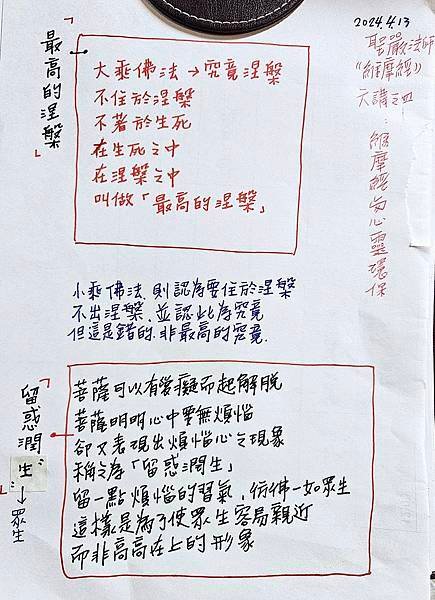 2024.4.13
聖嚴法師
《維摩經》
六講之四
：維摩經與心靈環保
「最高的涅槃」
大乘佛法→究竟涅槃
不住於涅槃
不著於生死
在生死之中
在涅槃之中
叫做「最高的涅槃」
小乘佛法, 則認為要住於涅槃
不出涅槃, 並認此為究竟
但這是錯的, 非最高的究竟.
「留惑潤生」
↓
眾生
菩薩可以有愛癡而起解脫
菩薩明明心中無煩惱
卻又表現出煩惱心之現象
稱之為「留惑潤生」
留一點煩惱的習氣, 彷彿一如眾生
這樣是為了使眾生容易親近
而非高高在上的形象